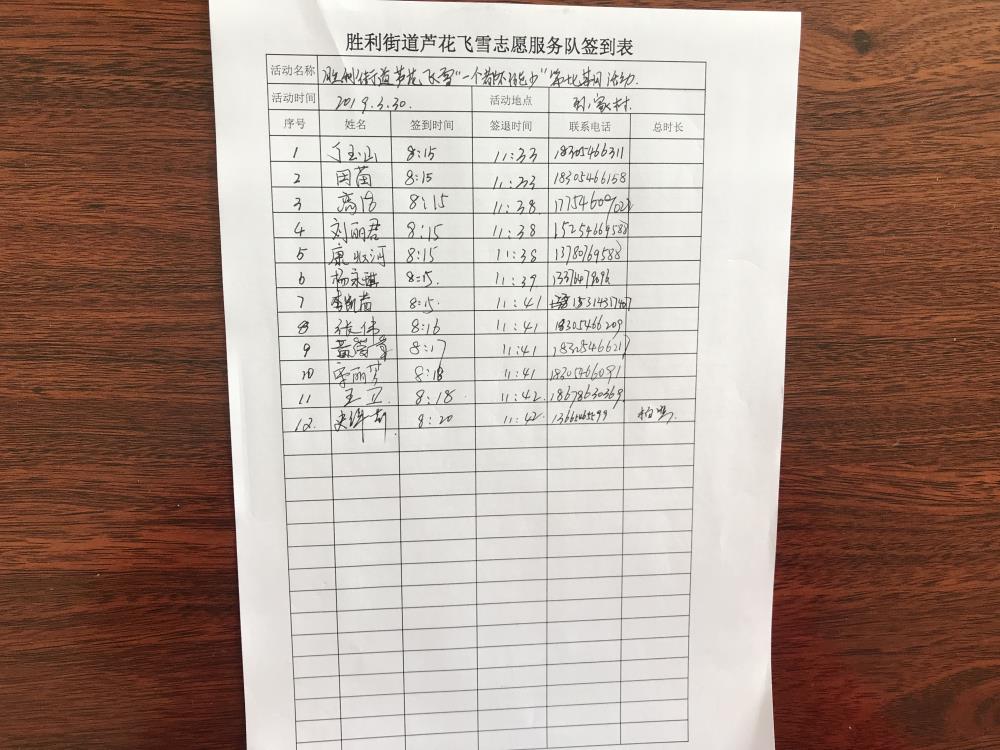 胜利街道芦花飞雪志愿服务队签到表
活动名称 胜利街道芦花飞雪"一个都不能少"第七期活动.
活动时间 2019.3.30. 活动地点 家村.
序号 姓名 签到时间 签退时间 联系电话 总时长
1 丁玉山 8:15 11:33 18305466311
2 田苗 8:15 11:33 18305466158
3 高 8:15 11:38.
4 刘丽君 8:15 11:38
5 康 河 8:15 11:38 13780769588
6 杨永琪 8:15. 11:39
7 8:15. 11:41 15314317407
8 张伟 8:16 11:41 18305466209
9 8:17 11:41 18325466217
10 丽芳 8:18 11:41 18305466091
11 王卫. 8:18. 11:42. 18678630369
12. 8:20 11:42.